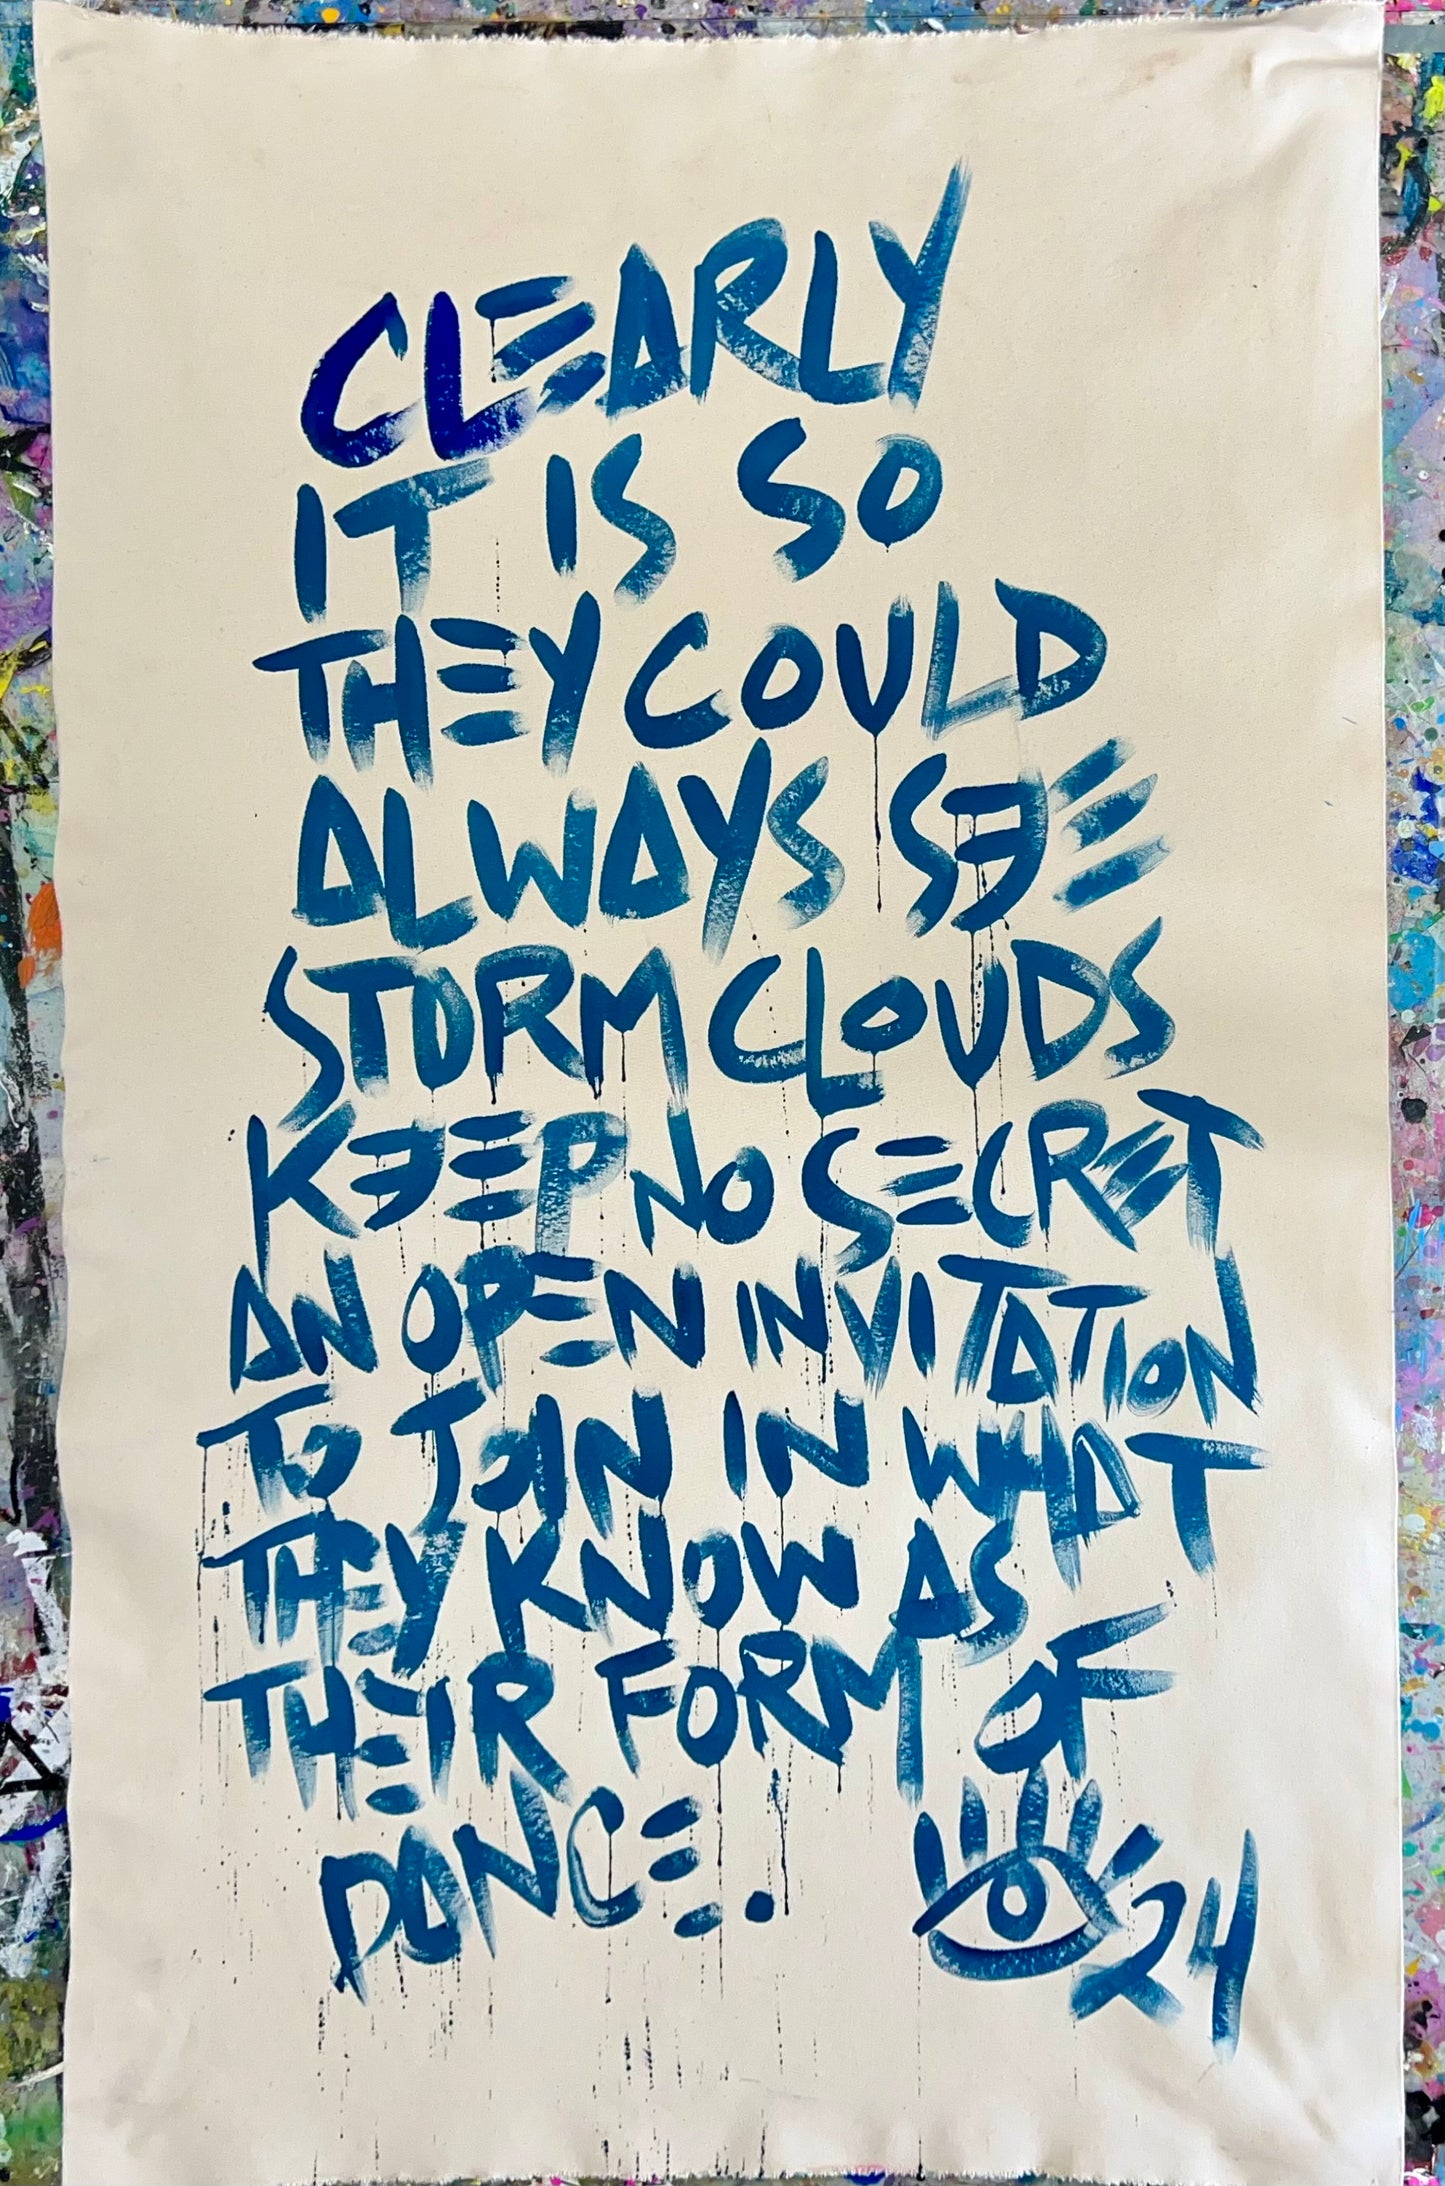 CLEARLY
IT IS SO
THEY COULD
ALWAYS SEE
STORM CLOUDS
KEEP NO SECRET
AN OPEN INVITATION
TO JOIN IN WHAT
THEY KNOW AS
THEIR FORM OF
DANCE.
24